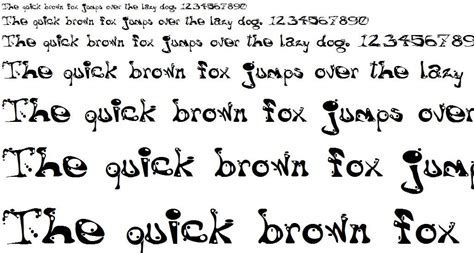 The quick brown fox jumps over the lazy dog. 1234567890
The quick brown fox jumps over the lazy dog. 1234567890
The quick brown fox jumps over the lazy dog. 123456789
The quick brown fox jumps over the lazy
The quick brown fox jumps over
The quick brown fox jump
The quick brown fox